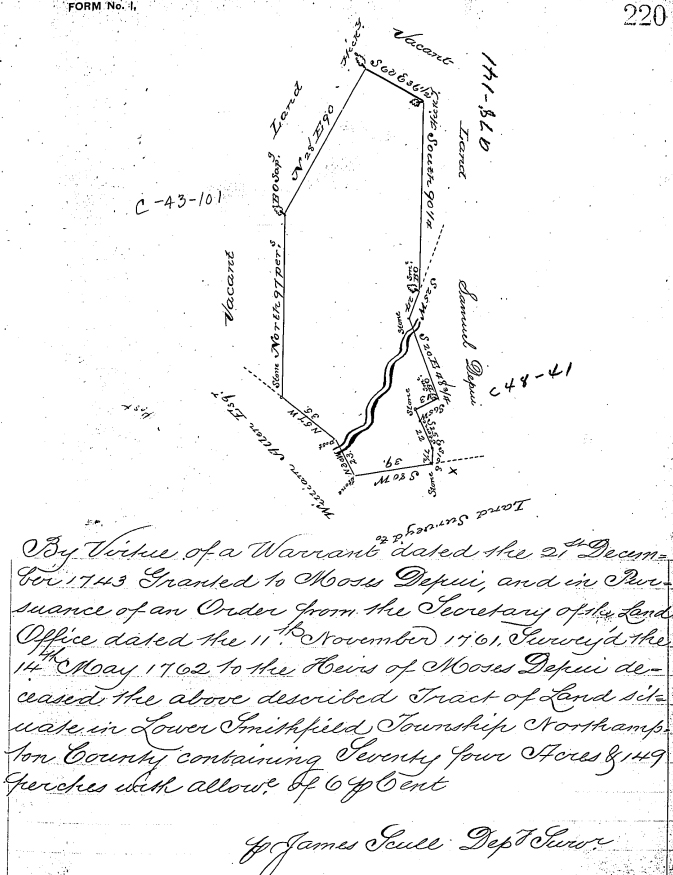 FORM No. 1.
220
Vacant
Land
Hick.y
S 62 E 36 1/2
N 28 E 90
South 90 1/4
Land
B O Sap.g
C-43-101
Vacant
Stone North 97 per.s
Stone
Samuel Depui
C 48-41
S 20 E 48 1/4
Stone
N 57 W
38
Post
William Allen Esq.r
Stone
S 80 W
39.
Stone
X
Land Survey'd to
By Virtue of a Warrant dated the 21st Decem=
ber 1743 Granted to Moses Depui, and in Pur=
suance of an Order from the Secretary of the Land
Office dated the 11.th November 1761. Survey'd the
14th May 1762 to the Heirs of Moses Depui de=
ceased the above described Tract of Land sit=
uate in Lower Smithfield Township Northamp=
ton County containing Seventy four Acres & 149
perches with allow.e of 6 p Cent
p James Scull Dep.t Surv.r